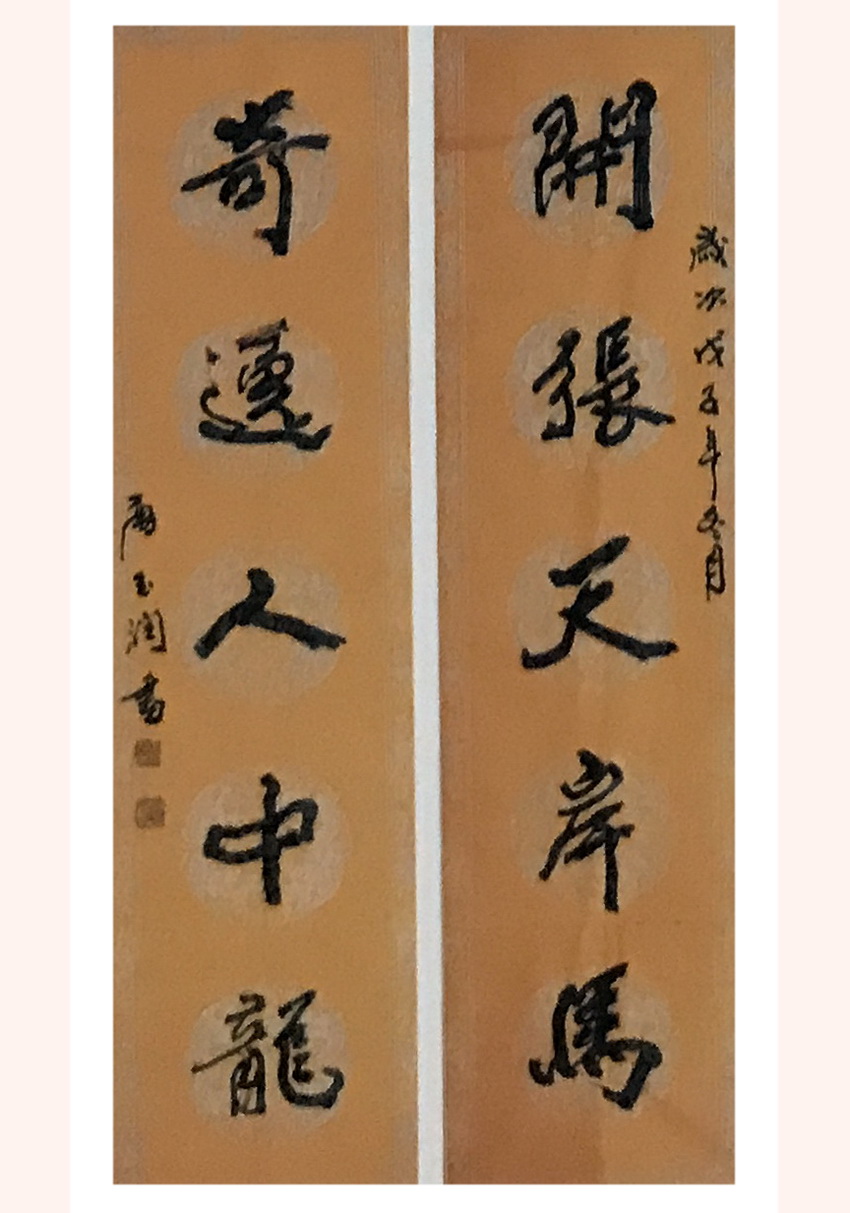 歲次戊子年冬月
開張天岸馬
奇逸人中龍
玉润書